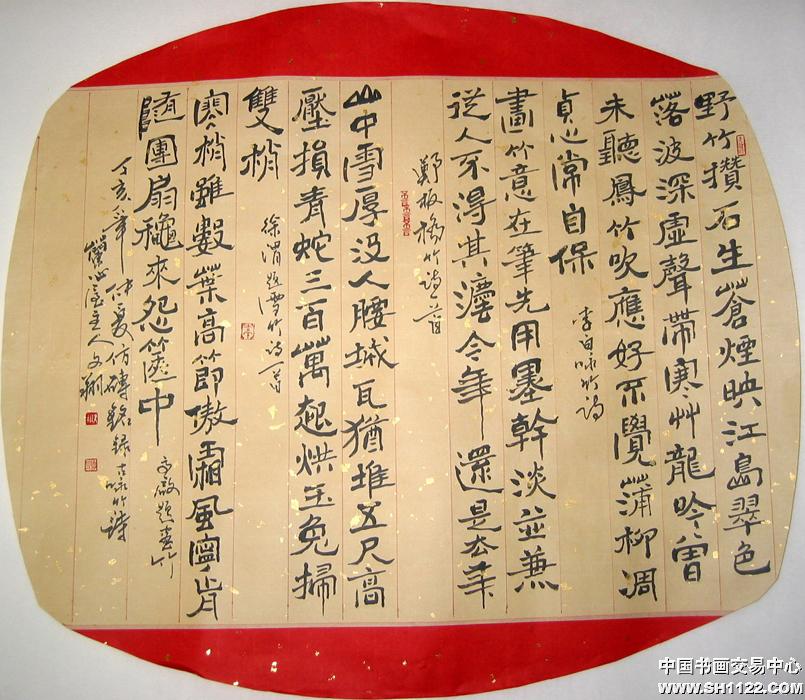 野竹攢石生蒼煙映江島翠色
落波深虛聲帶寒艸龍吟曾
未聽鳳竹吹應好不學蒲柳凋
貞心常自保
李白咏竹詩
畫竹意在筆先用墨幹淡並兼
從人不得其灋今年還是去年
鄭板橋竹詩一首
山中雪厚没人腰城瓦猶堆五尺高
壓損青蛇三百萬起烘玉兔掃
雙梢
徐渭題雪竹詩一首
寒梢雖數葉高節傲霜風寧肯
隨團扇龝來怨篋中
題畫竹
丁亥年仲夏仿磚銘録古咏竹詩
主人文
中国书画交易中心
WWW.SH1122.COM